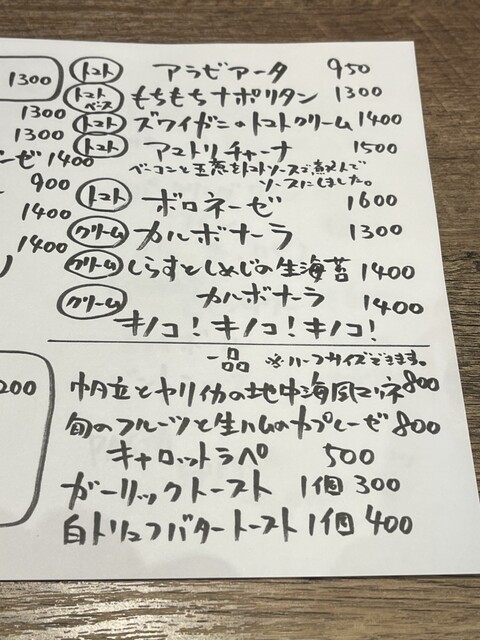 1300
1300
1300
ーゼ 1400
900
1400
1400
200
トマト アラビアータ 950
トマトベース もちもちナポリタン 1300
トマト ズワイガニのトマトクリーム 1400
トマト アマトリチャーナ 1500
ベーコンと玉葱をトマトソースで煮込んで
ソースにしました。
トマト ボロネーゼ 1600
クリーム カルボナーラ 1300
クリーム しらすとしめじの生海苔 1400
クリーム カルボナーラ 1400
キノコ！キノコ！キノコ！
一品 ※ハーフサイズできます。
帆立とヤリイカの地中海風マリネ 800
旬のフルーツと生ハムのカプレーゼ 800
キャロットラペ 500
ガーリックトースト 1個 300
白トリュフバタートースト 1個 400